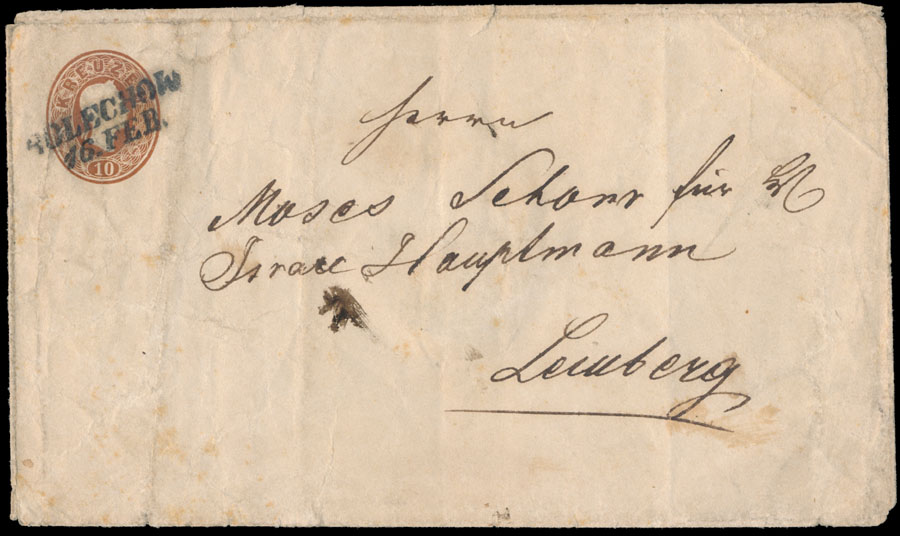 KREUZER
BOLECHOW
16. FEB.
10
Herrn
Moses Schorr für
Israel Hauptmann
Lemberg